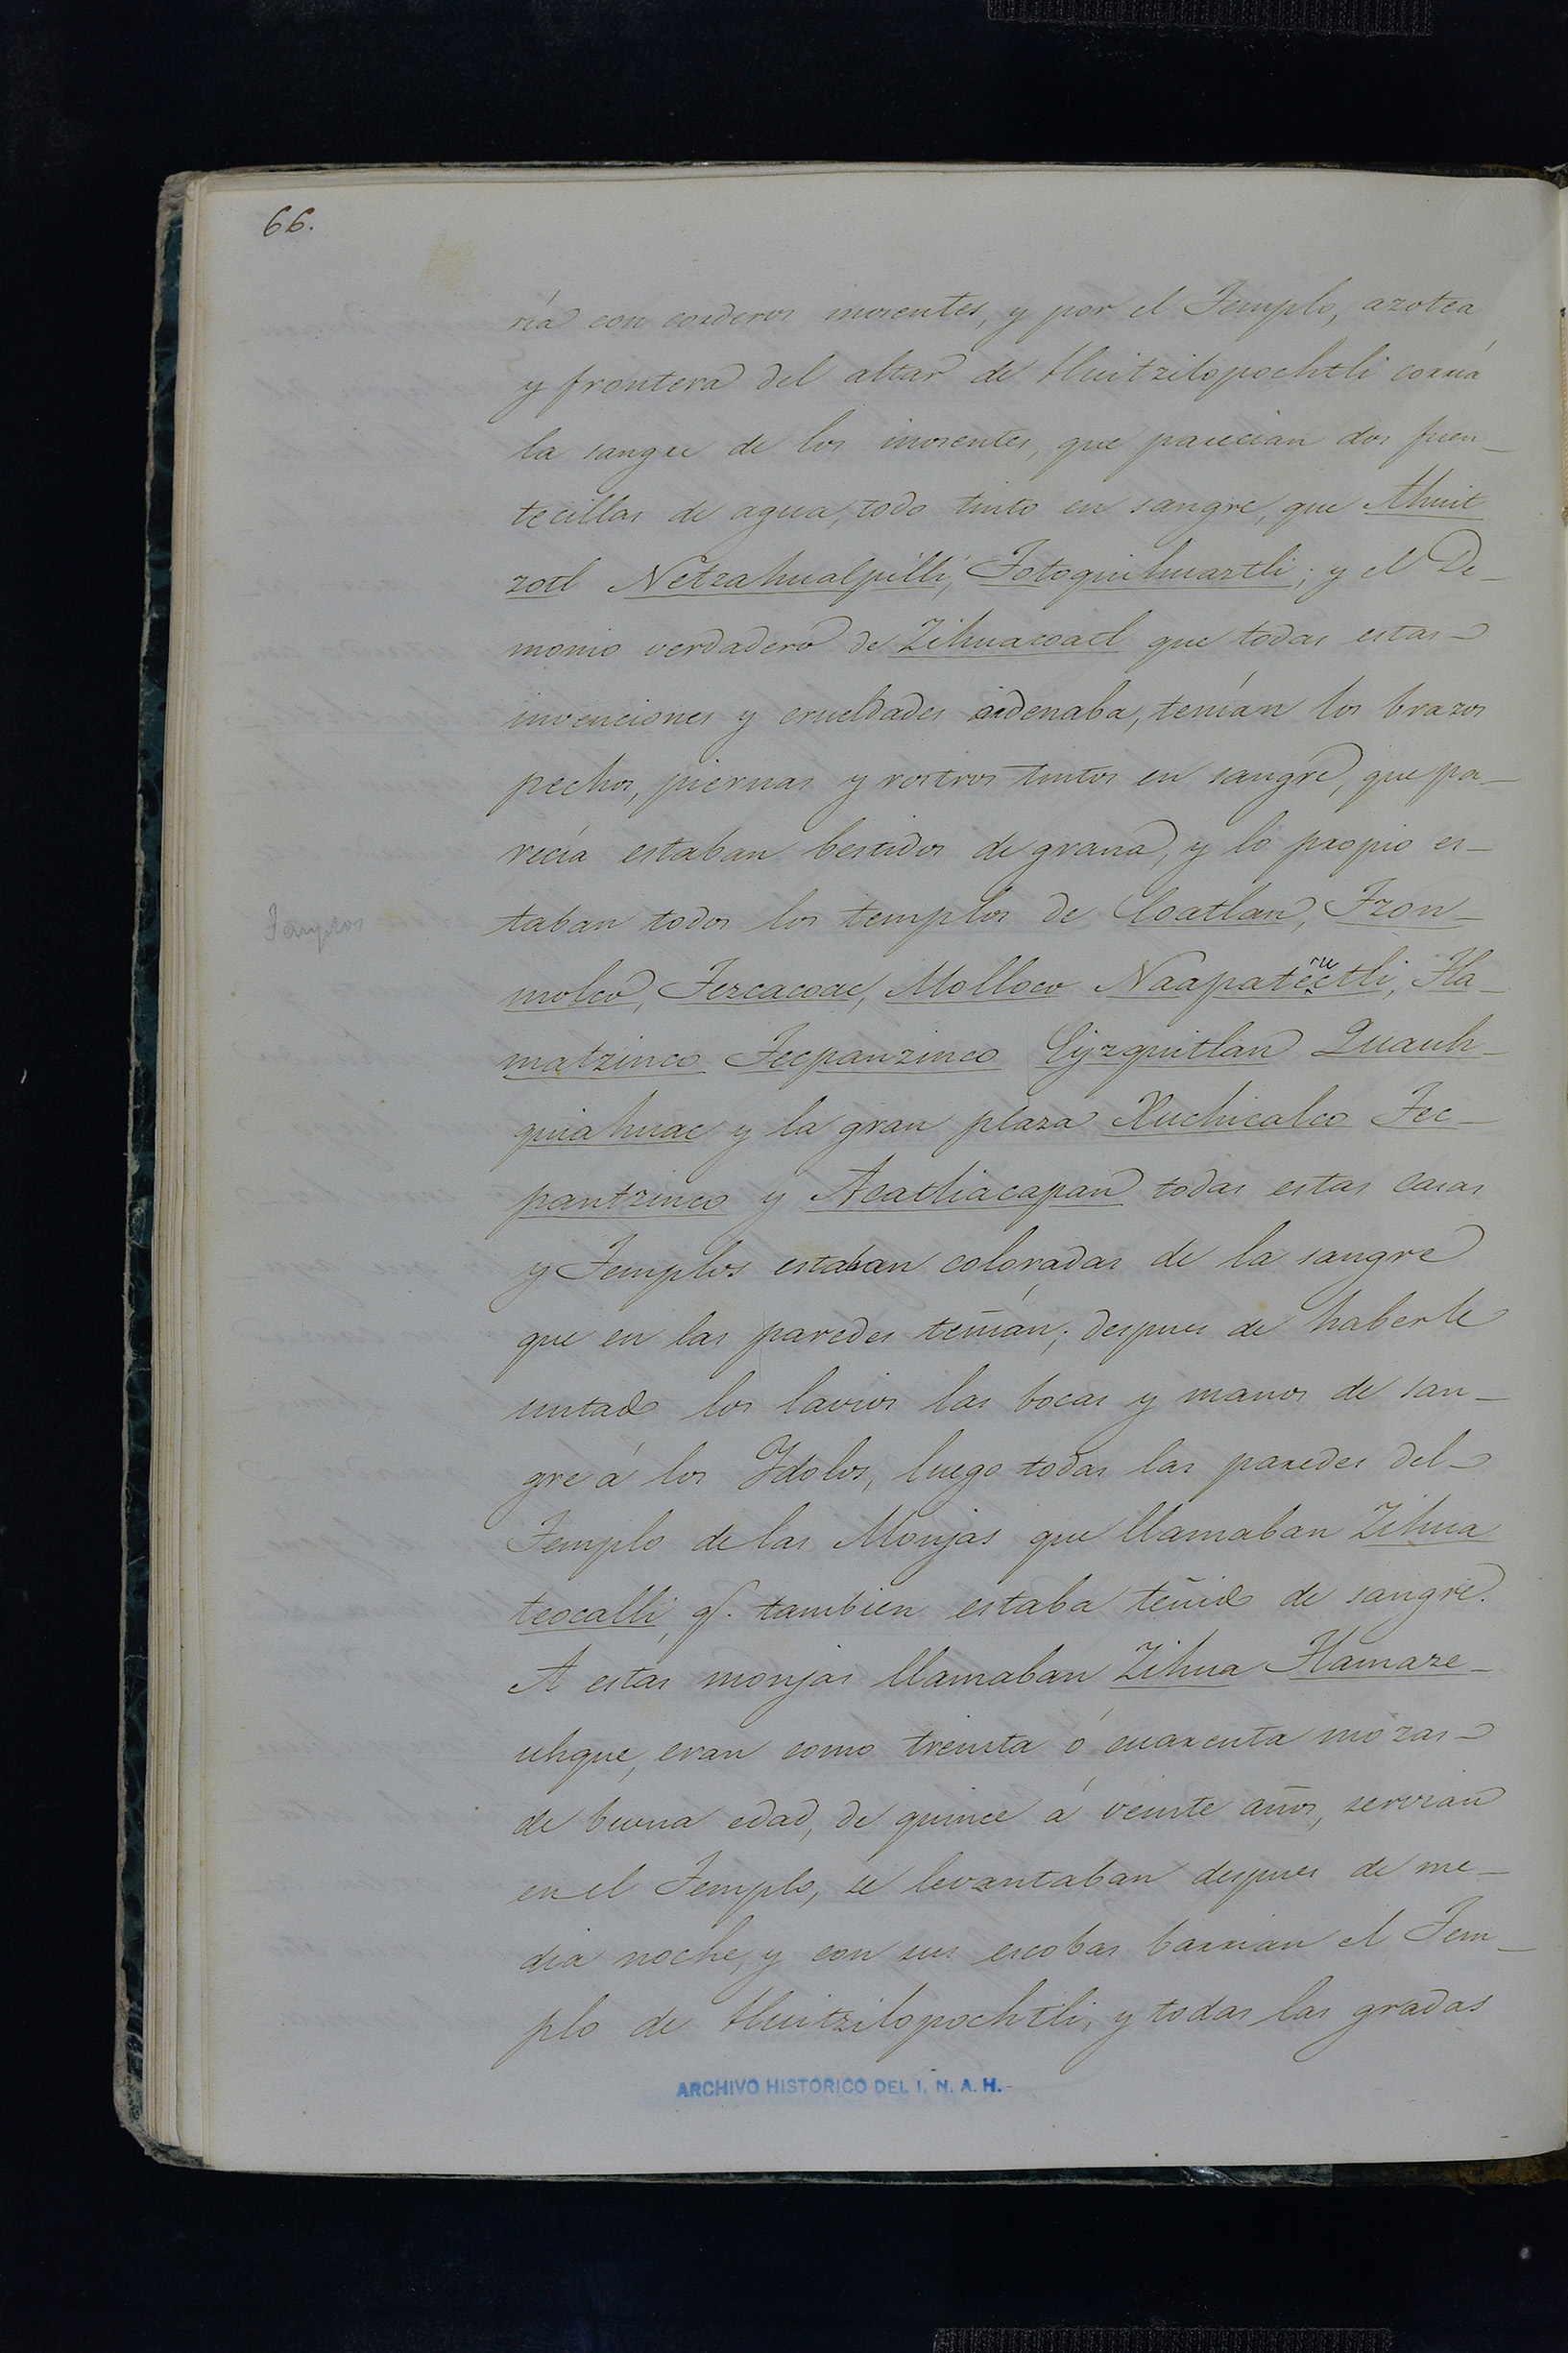 66.
ría con corderos inosentes, y por el Templo, azotea
y frontera del altar de Huitzilopochtli corría
la sangre de los inosentes, que parecian dos fuen-
tecillas de agua, todo tinto en sangre, que Ahuit
zotl Netzahualpilli, Totoquihuaztli; y el De-
monio verdadero de Zihuacoatl que todas estas
invenciones y crueldades ordenaba, tenían los brazos
pechos, piernas y rostros tintos en sangre, que pa-
recía estaban bestidos de grana, y lo propio es-
Templos
taban todos los templos de Coatlan, Tzon-
molco, Tezcacoac, Molloco Naapatecutli, Tla-
matzinco Tecpanzinco Yzquitlan Quauh-
quiahuac y la gran plaza Xuchicalco Tec-
pantzinco y Acatliacapan todas estas casas
y Templos estaban coloradas de la sangre
que en las paredes teñían; despues de haberle
untado los lavios las bocas y manos de san-
gre á los Ydolos, luego todas las paredes del
Templo de las Monjas que llamaban Zihua
teocalli, q. tambien estaba teñido de sangre.
A estas monjas llamaban Zihua Tlamaze-
uhque, eran como treinta ó cuarenta mozas
de buena edad, de quince á veinte años, servian
en el Templo, se levantaban despues de me-
dia noche, y con sus escobas barrian el Tem-
plo de Huitzilopochtli, y todas las gradas
ARCHIVO HISTORICO DEL I. N. A. H.